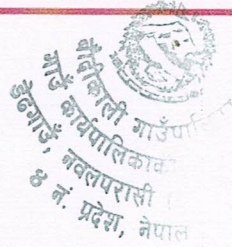 बौदीकाली गाउँपा
गाउँ कार्यपालिकाको
ढुँगाउँ, नवलपरासी
४ नं. प्रदेश, नेपाल